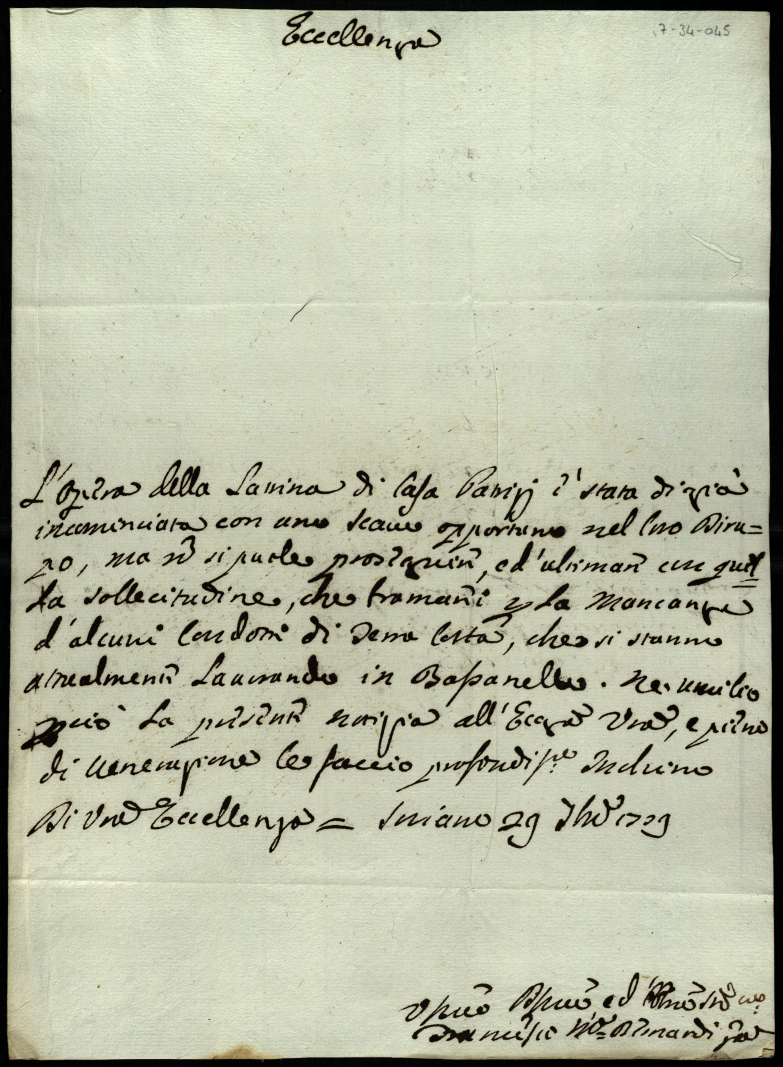 Eccellenza
7-34-045
L'opera della Lavina di Casa Parisij è stata di già
incominciata con uno scavo opportuno nel suo Diru=
po, ma nõ si puole proseguirẽ, ed'ultimarẽ con quel=
la sollecitudine, che bramasi p la mancanza
d'alcuni Condotti di Terra Cotta, che si stanno
attualmentẽ Lavorando in Bassanello. Ne umilio
pciò la presentẽ notizia all'Ecc.za Vrã, e pieno
di venerazione le faccio profondis.mo Inchino
Di Vrã Eccellenza = Soriano 29 9bre 1729
ed
Francesco M.a Bernardi